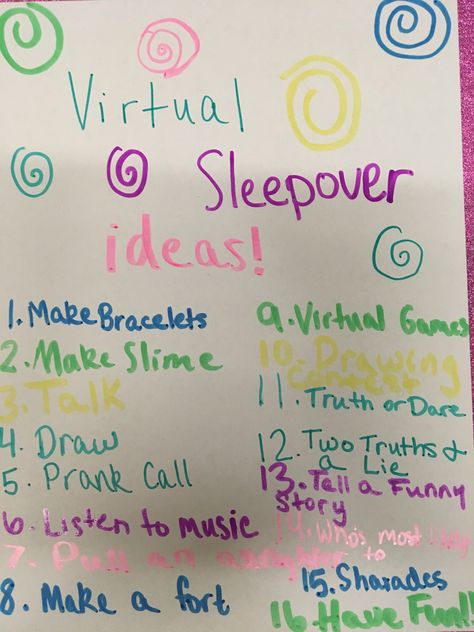 Virtual
Sleepover
ideas!
1. Make Bracelets
2. Make Slime
3. Talk
4. Draw
5. Prank Call
6. Listen to music
7. Pull an allnighter
8. Make a fort
9. Virtual Games
10. Drawing
Contest
11. Truth or Dare
12. Two Truths &
a Lie
13. Tell a Funny
Story
14. Who's most likely
to
15. Sharades
16. Have Fun!!